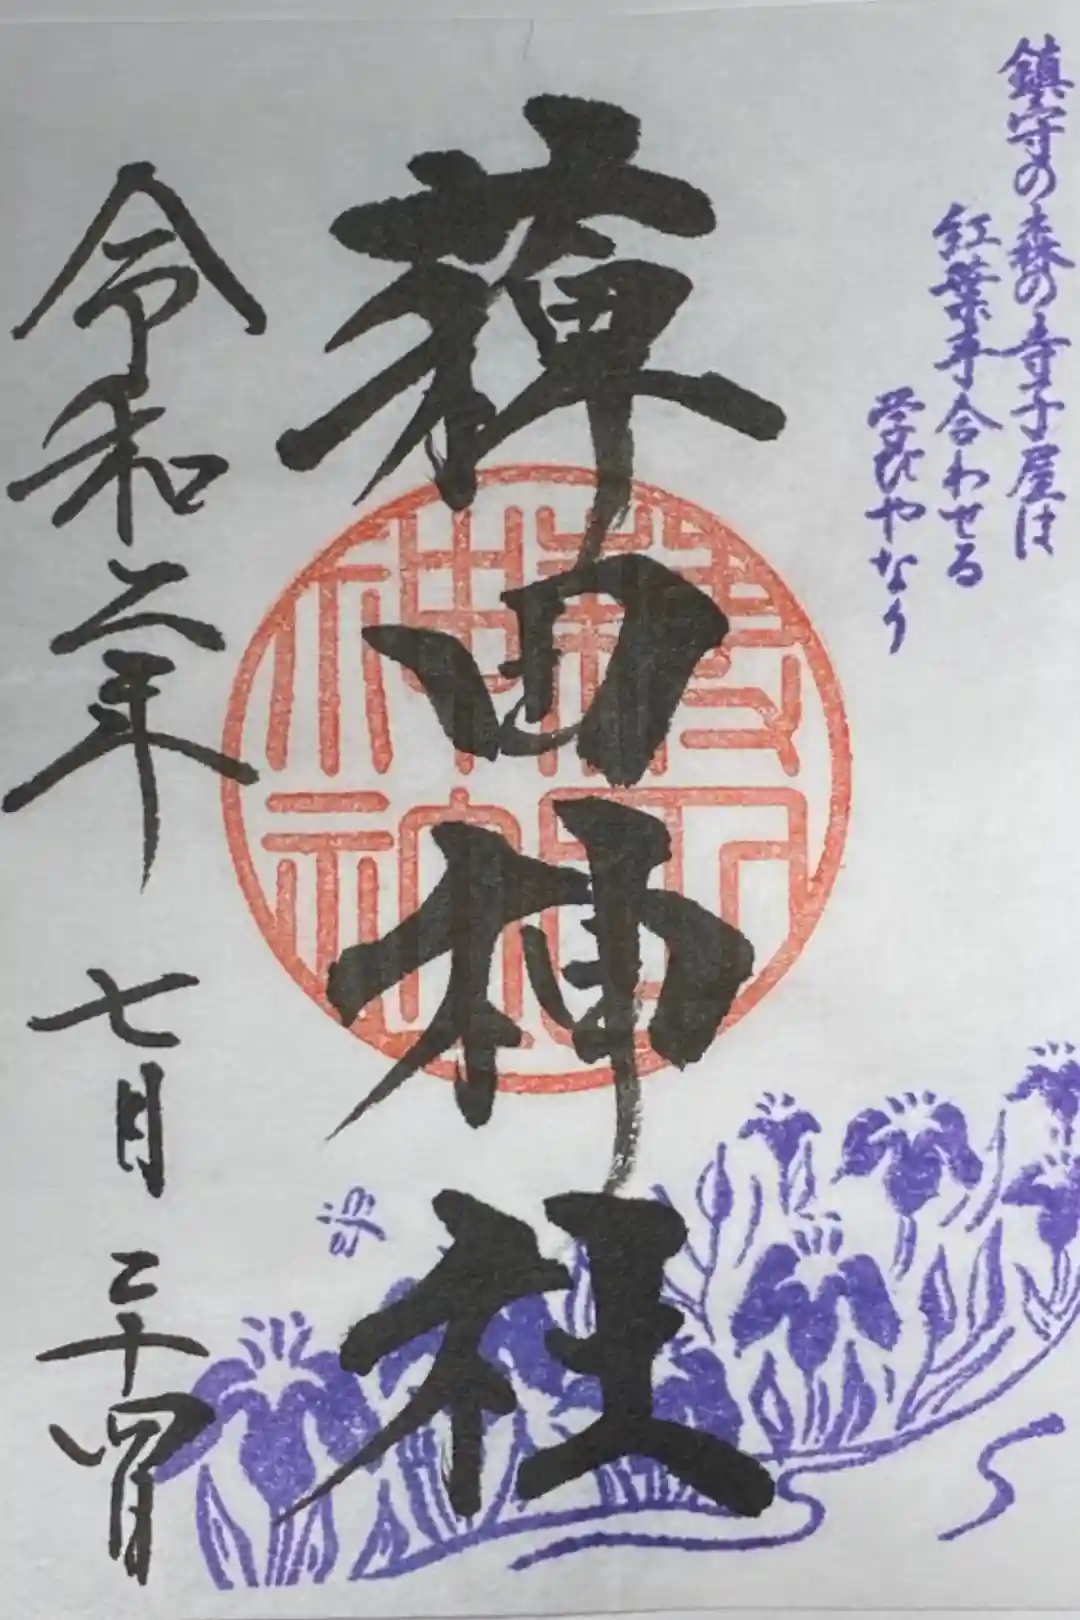 鎮守の森の寺子屋は
紅葉手合わせる
学びやなり
薭田神社
令和二年 七月 二十四日